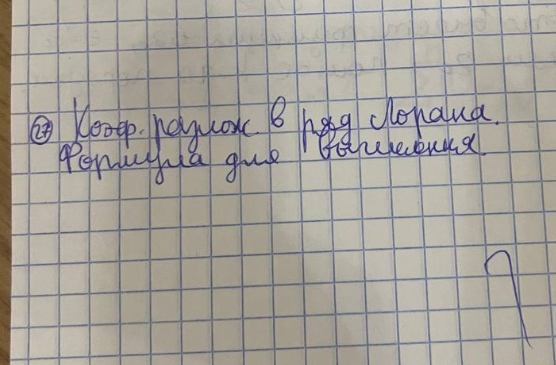 27 Коэф. разлож в ряд Лорана.
Формула для вычисления